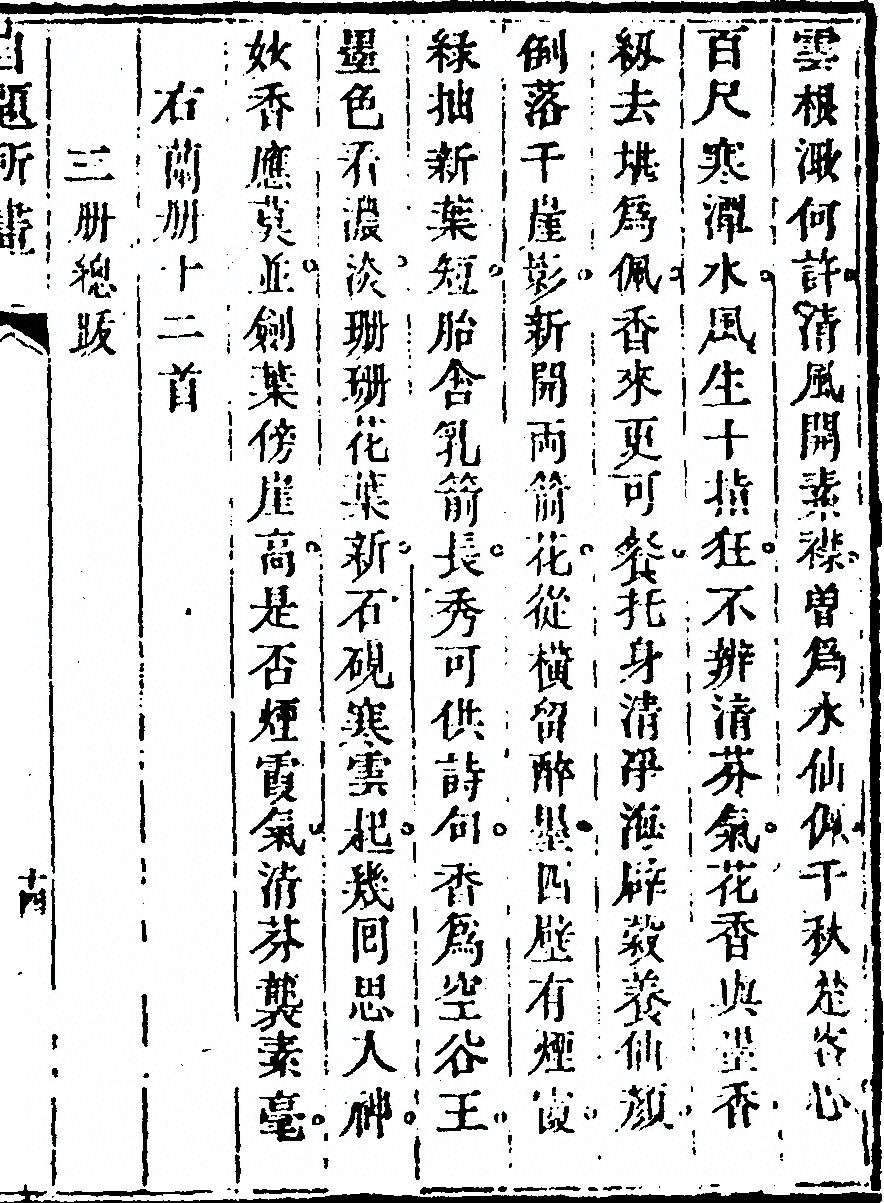 雲根漱何許清風開素襟曽爲水仙佩千秋楚客心
百尺寒潭水風生十指狂不辨清芬氣花香與墨香
紉去堪爲佩香來更可餐托身清淨海辟穀養仙顔
倒落千崖影新開両箭花從橫留醉墨四壁有煙霞
緑抽新葉短胎含乳箭長秀可供詩句香爲空谷王
墨色有濃淡珊珊花葉新石硯寒雲起幾回思入神
妙香應莫並劍葉傍崖高是否煙霞氣清芬襲素毫
右蘭册十二首
三册總跋
自題所畫
十四